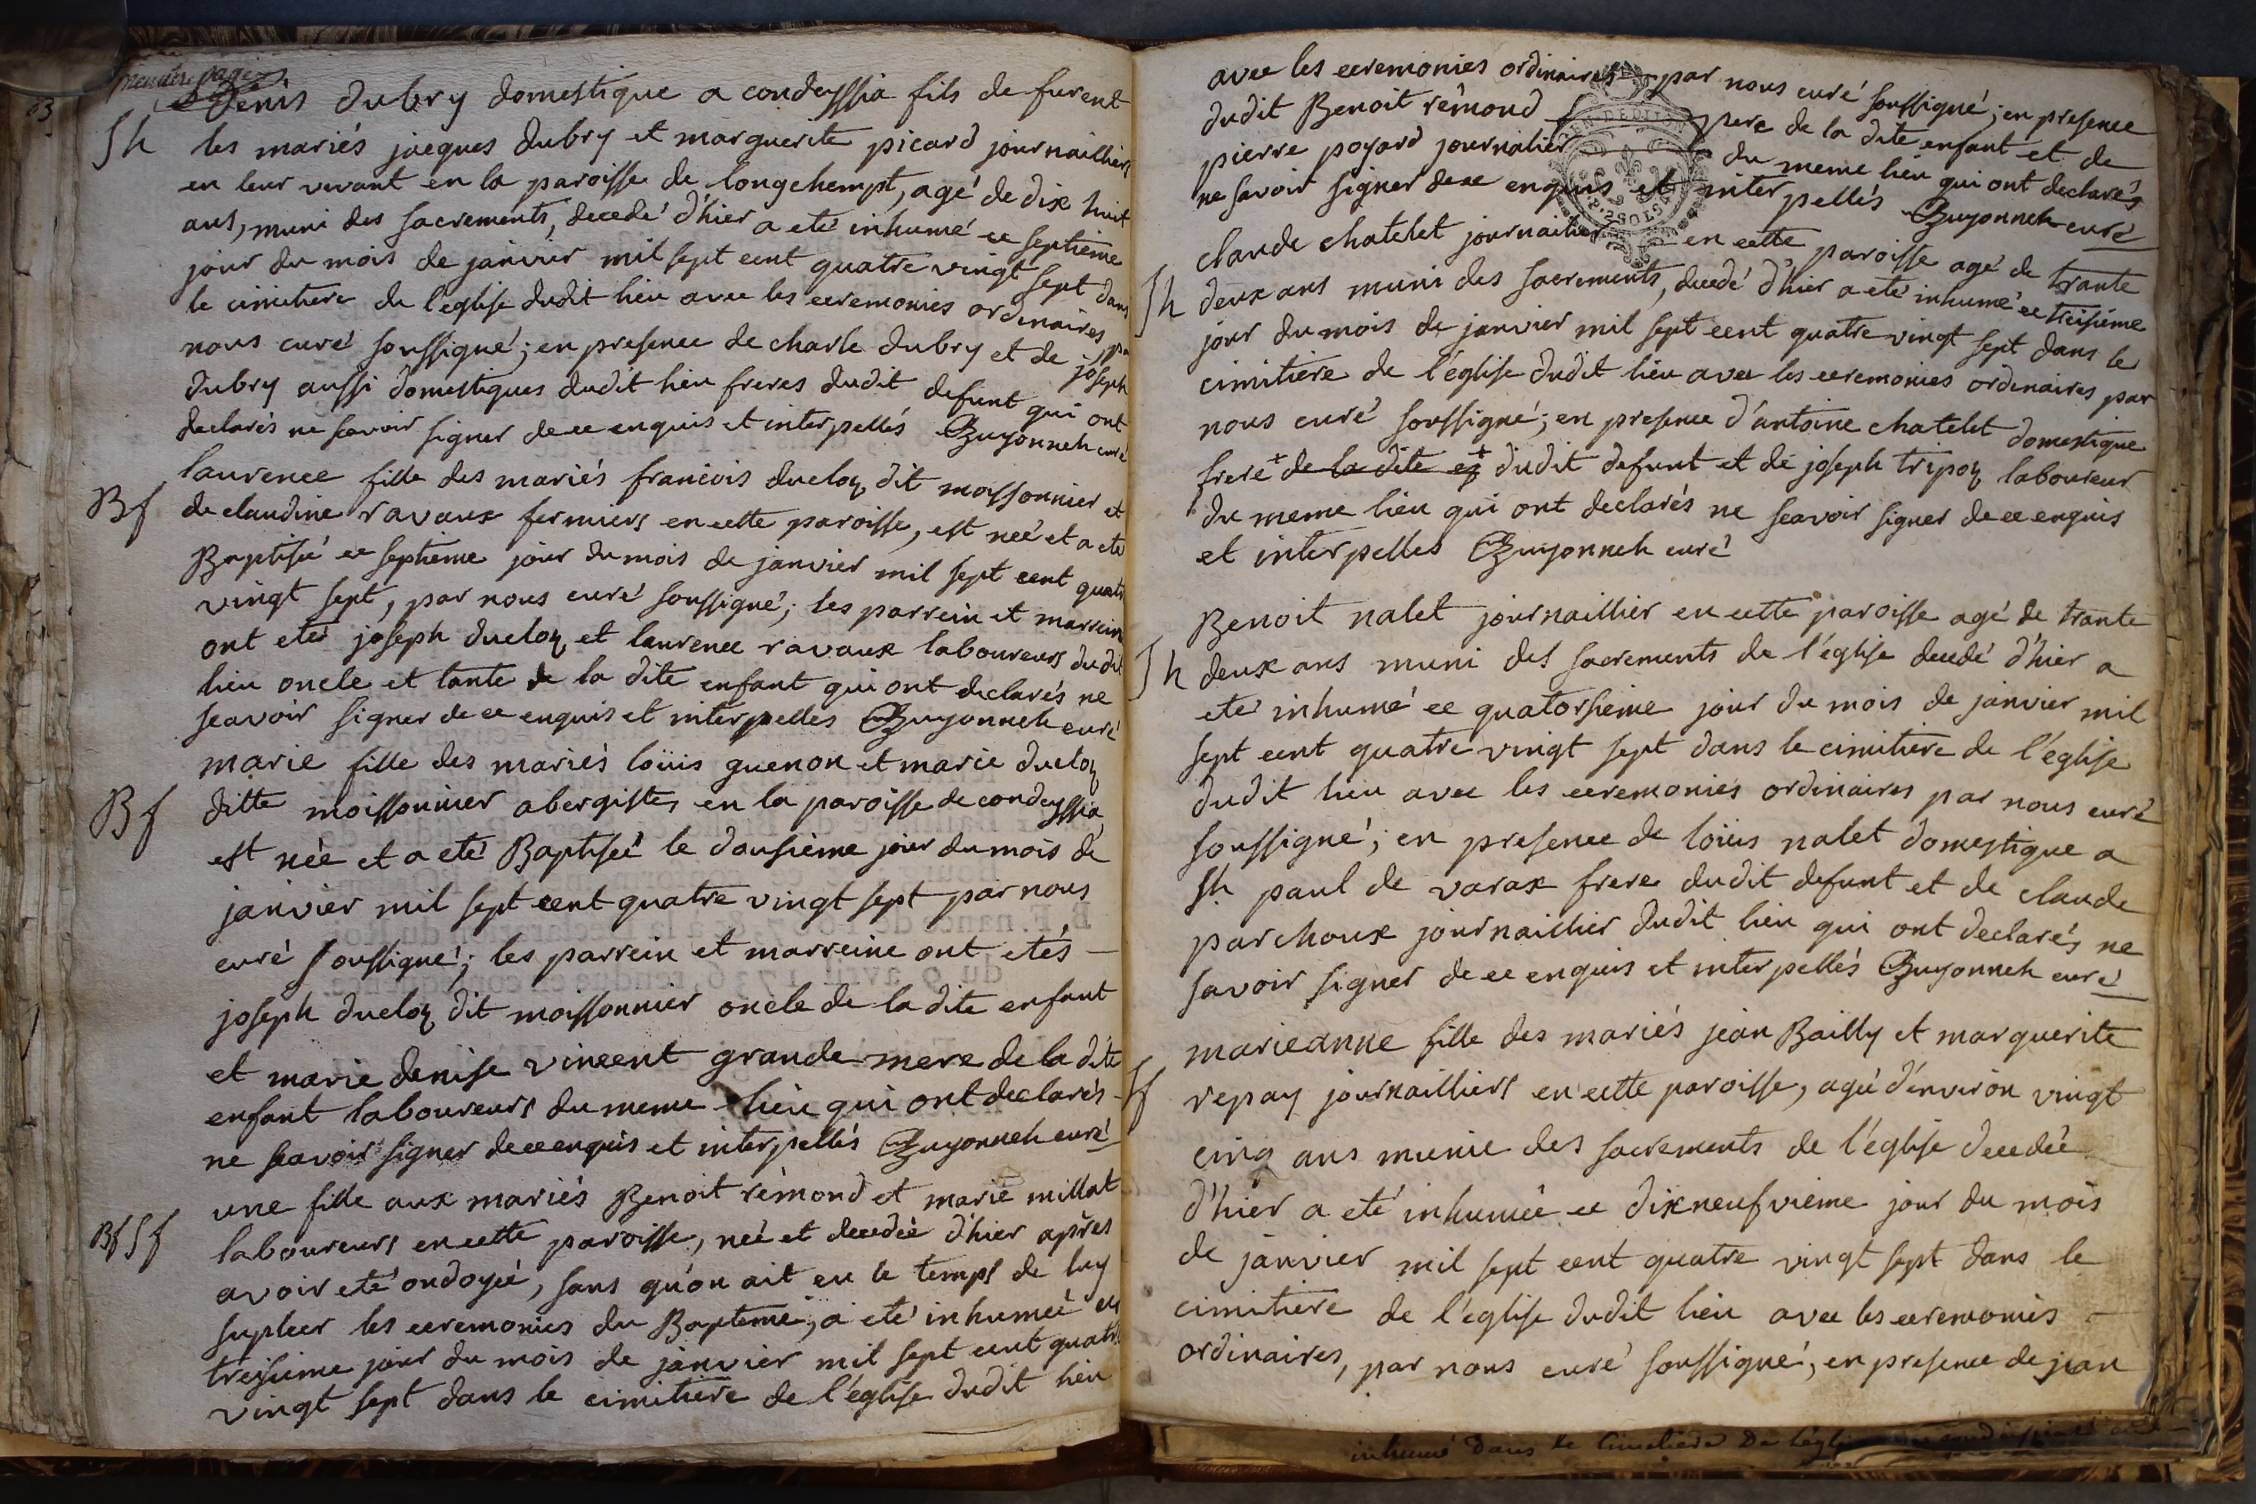 premiere page
Denis dubry domestique a condeyssia fils de furent
Sh les mariés jacques dubry et marguerite picard journailliers
en leur vivant en la paroisse de longchempt, agé de dix huit
ans, muni des sacrements, decedé d'hier a eté inhumé ce septieme
jour du mois de janvier mil sept cent quatre vingt sept dans
le cimitiere de l'eglise dudit lieu avec les ceremonies ordinaires par
nous curé soussigné; en presence de charle dubry et de joseph
dubry aussi domestiques dudit lieu freres dudit defunt qui ont
declarés ne scavoir signer de ce enquis et interpellés Guyonneh curé
laurence fille des mariés francois ducloz dit moissonnier et
Bf de claudine ravaux fermiers en cette paroisse, est neé et a eté
Baptisée ce septieme jour du mois de janvier mil sept cent quatre
vingt sept, par nous curé soussigné; les parrein et marrein
ont eté joseph ducloz et laurence ravaux laboureurs dudit
lieu oncle et tante de la dite enfant qui ont declarés ne
scavoir signer de ce enquis et interpelles Guyonneh curé
marie fille des mariés loüis guenon et marie ducloz
Bf ditte moissonnier abergistes en la paroisse de condeyssia
est née et a eté Baptisée le dousieme jour du mois de
janvier mil sept cent quatre vingt sept par nous
curé soussigné; les parrein et marreine ont etés —
joseph ducloz dit moissonnier oncle de la dite enfant
et marie denise vincent grande mere de la dite
enfant laboureurs du meme lieu qui ont declarés
ne scavoir signer de ce enquis et interpellés Guyonneh curé
une fille aux mariés Benoit rémond et marie millat
Bf Sf laboureurs en cette paroisse, neé et decedée d'hier apres
avoir eté ondoyée, sans qu'on ait eu le temps de luy
supleer les ceremonies du Bapteme, a eté inhumeé ce
treisieme jour du mois de janvier mil sept cent quatre
vingt sept dans le cimitiere de l'église dudit lieu
avec les ceremonies ordinaires par nous curé soussigné; en presence
dudit Benoit rémond pere de la dite enfant et de
pierre poyard journalier du meme lieu qui ont declarés
ne savoir signer de ce enquis et interpellés Guyonneh curé
claude chatelet journailier en cette paroisse agé de trante
Sh deux ans muni des sacrements, decedé d'hier a eté inhumé ce treisieme
jour du mois de janvier mil sept cent quatre vingt sept dans le
cimitiere de l'église dudit lieu avec les ceremonies ordinaires par
nous curé soussigné; en presence d'antoine chatelet domestique
frere + de la dite + dudit defunt et de joseph tripoz laboureur
du meme lieu qui ont declarés ne scavoir signer de ce enquis
et interpelles Guyonneh curé
Benoit nalet journaillier en cette paroisse agé de trante
Sh deux ans muni des sacrements de l'église decedé d'hier a
eté inhumé ce quatorsieme jour du mois de janvier mil
sept cent quatre vingt sept dans le cimitiere de l'église
dudit lieu avec les ceremonies ordinaires par nous curé
soussigné; en presence de loüis nalet domestique a
St. paul de varax frere dudit defunt et de claude
parchoux journaillier dudit lieu qui ont declarés ne
savoir signer de ce enquis et interpellés Guyonneh curé
marieanne fille des mariés jean Bailly et marguerite
Sf repay journailliers en cette paroisse, agée d'environ vingt
cinq ans munie des sacrements de l'église decedée
d'hier a eté inhumée ce dixneufvieme jour du mois
de janvier mil sept cent quatre vingt sept dans le
cimitiere de l'église dudit lieu avec les ceremonies —
ordinaires, par nous curé soussigné, en presence de jean
inhumé dans le Cimetiere De l'église